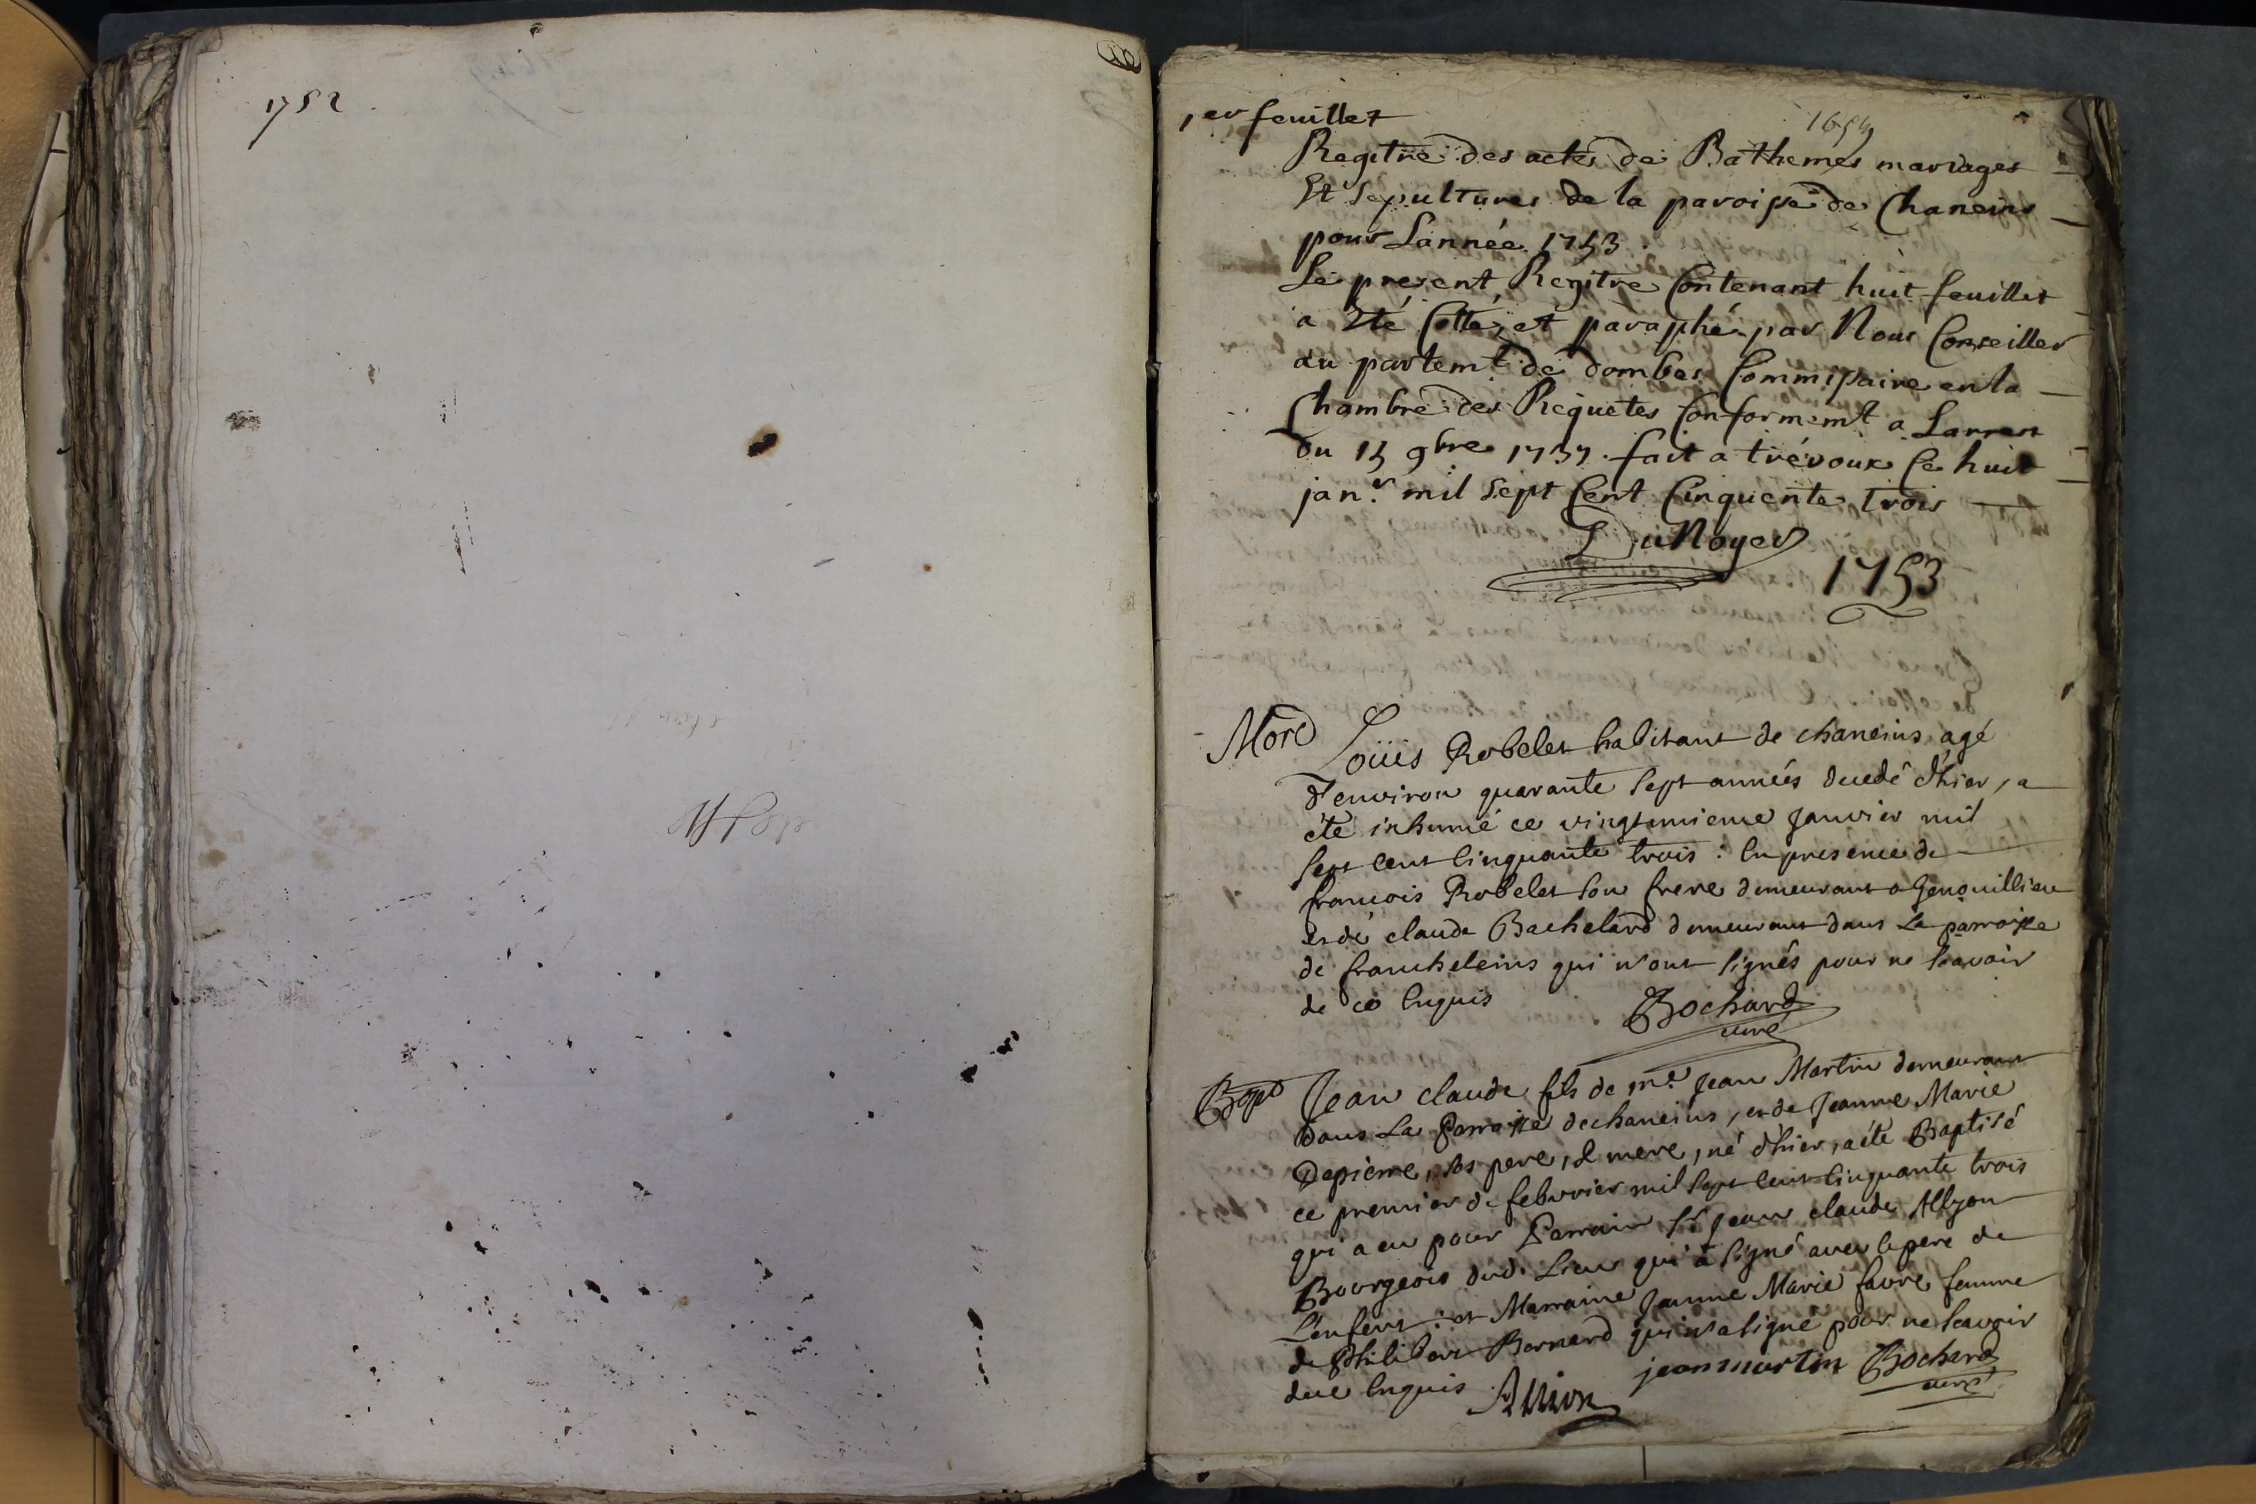 1752
1er feuillet
Regitre des actes de Bathemes mariages
Et Sepultures de la paroisse de Chaneins
pour Lannée 1753.
Le present Regitre Contenant huit feuillet
a Eté Cotté, et paraphé par Nous Conseiller
au parlemt. de dombes Commissaire en la
Chambre des Requetes Conformemt. a Larrest
Du 15 9bre 1737. fait a trévoux Ce huit
janr. mil Sept Cent Cinquente trois
DuNoyer
1753
Mort Loüis Robelet habitant de chaneins agé
d'environ quarante Sept années decedé d'hier, a
été inhumé ce vingtunieme Janvier mil
Sept Cent Cinquante trois : En presence de
francois Robelet Son frere demeurant a Genouillieu
et de claude Bachelard demeurant dans La parroisse
de francheleins qui n'ont Signés pour ne Scavoir
de ce Enquis Bochard
curé
Bapt Jean claude fils de me. Jean Martin demeurant
Dans La Parroisse de chaneins, et de Jeanne Marie
Depierre, Ses pere, & mere, né d'hier, a été Baptisé
ce premier de febvrier mil Sept Cent Cinquante trois
qui a eu pour Parrain Sr. Jean claude Allyon
Bourgeois dud. Lieu qui a Signé avec le pere de
L'enfent : et Marraine Jeanne Marie favre femme
de Philibert Bernard qui n'a Signé pour ne Scavoir
de ce Enquis Allion jean martin Bochard
curé